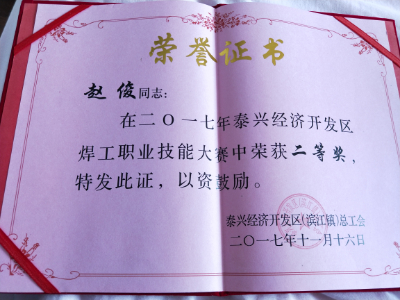 荣誉证书
赵俊同志:
在二〇一七年泰兴经济开发区
焊工职业技能大赛中荣获二等奖,
特发此证,以资鼓励。
泰兴经济开发区(滨江镇)总工会
二〇一七年十一月十六日